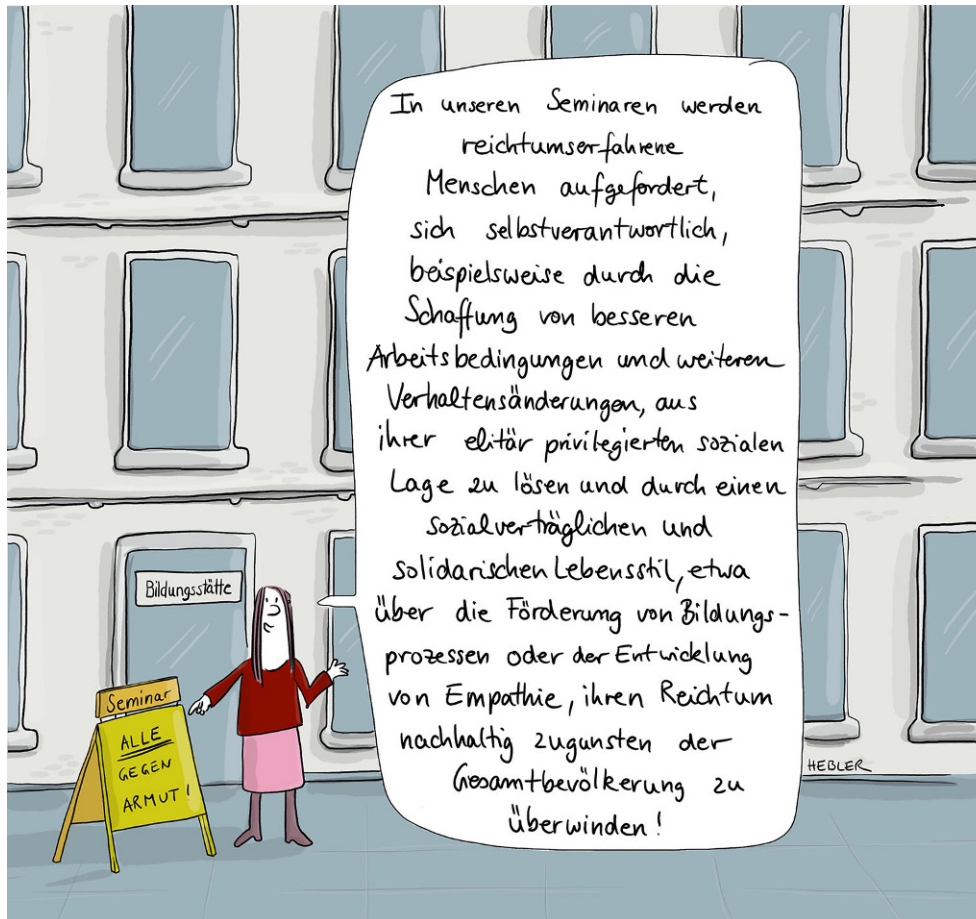 In unseren Seminaren werden
reichtumserfahrene
Menschen aufgefordert,
sich selbstverantwortlich,
beispielsweise durch die
Schaffung von besseren
Arbeitsbedingungen und weiteren
Verhaltensänderungen, aus
ihrer elitär privilegierten sozialen
Lage zu lösen und durch einen
sozialverträglichen und
solidarischen Lebensstil, etwa
über die Förderung von Bildungs-
prozessen oder der Entwicklung
von Empathie, ihren Reichtum
nachhaltig zugunsten der
Gesamtbevölkerung zu
überwinden!
Bildungsstätte
Seminar
ALLE
GEGEN
ARMUT!
HEBLER